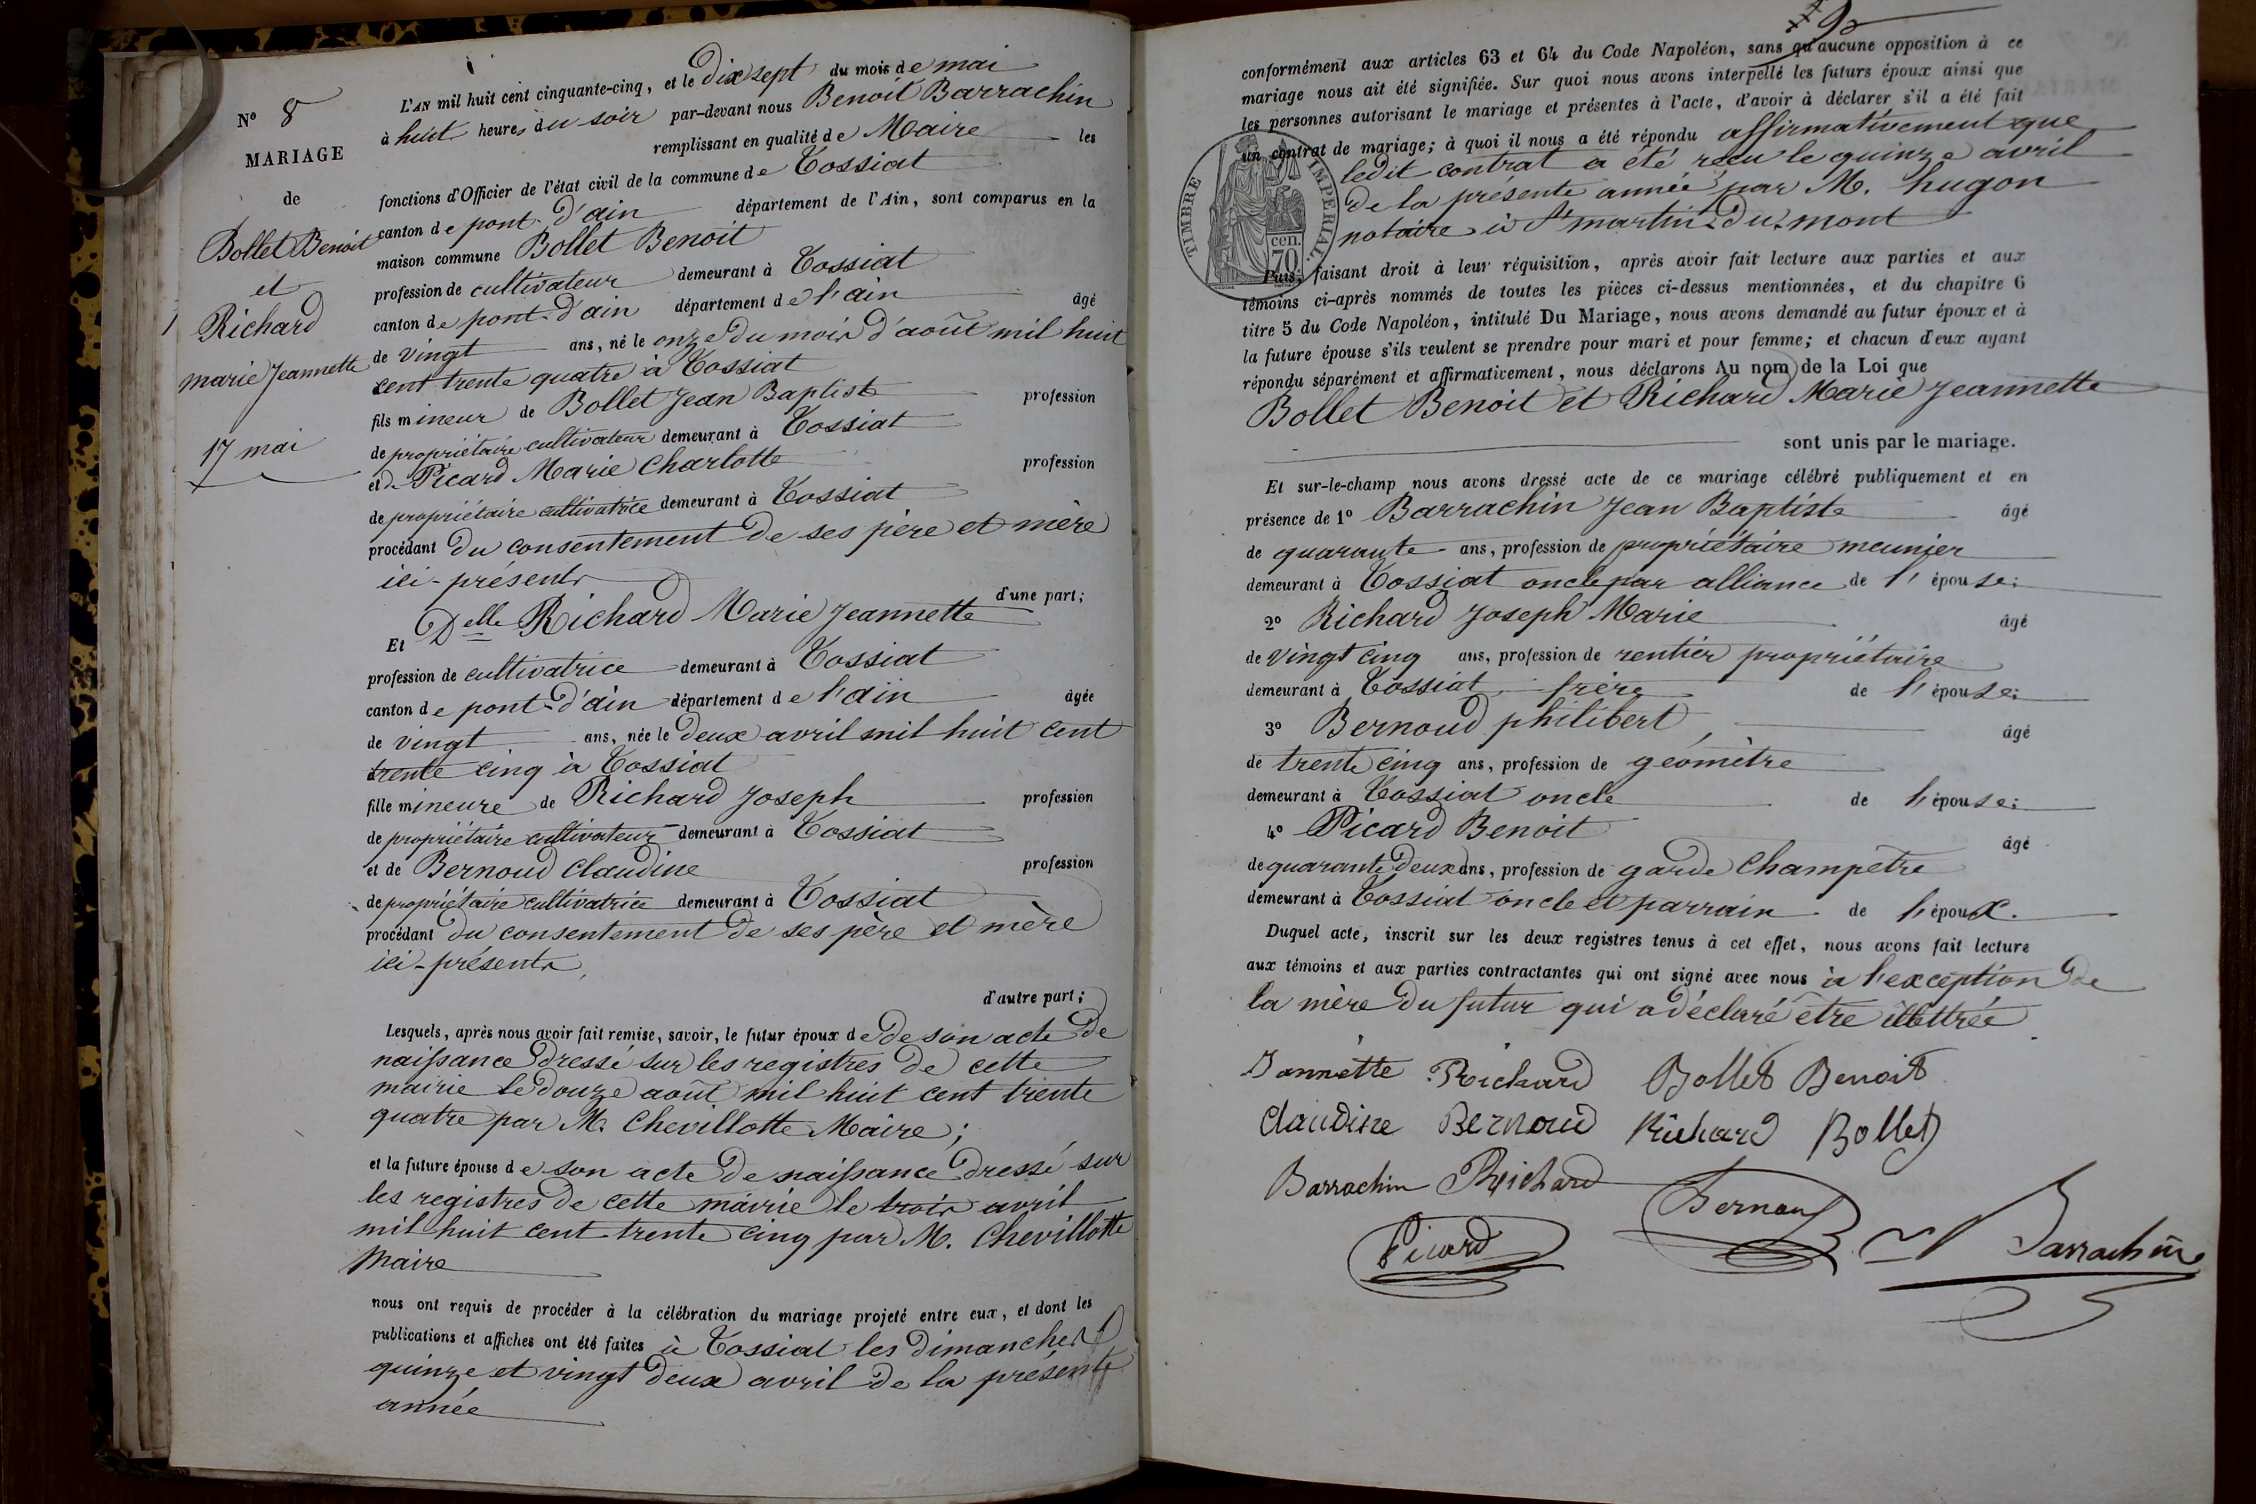 N° 8
MARIAGE
de
Bollet Benoit
et
Richard
marie Jeannette
17 mai
L'AN mil huit cent cinquante-cinq, et le dix sept du mois de mai
à huit heures du soir par-devant nous Benoit Barrachin
remplissant en qualité de Maire les
fonctions d'Officier de l'état civil de la commune de Tossiat
canton de pont-d'ain département de l'Ain, sont comparus en la
maison commune Bollet Benoit
profession de cultivateur demeurant à Tossiat
canton de pont-d'ain département de l'ain âgé
de vingt ans, né le onze du mois d'août mil huit
cent trente quatre à Tossiat
fils mineur de Bollet Jean Baptiste profession
de propriétaire cultivateur demeurant à Tossiat
et de Picard Marie Charlotte profession
de propriétaire cultivatrice demeurant à Tossiat
procédant du consentement de ses père et mère
ici-présents
d'une part;
Et Delle Richard Marie Jeannette
profession de cultivatrice demeurant à Tossiat
canton de pont-d'ain département de l'ain âgée
de vingt ans, née le deux avril mil huit cent
trente cinq à Tossiat
fille mineure de Richard Joseph profession
de propriétaire cultivateur demeurant à Tossiat
et de Bernoud Claudine profession
de propriétaire cultivatrice demeurant à Tossiat
procédant du consentement de ses père et mère
ici-présents
d'autre part;
Lesquels, après nous avoir fait remise, savoir, le futur époux de de son acte de
naissance dressé sur les registres de cette
mairie le douze août mil huit cent trente
quatre par M. Chevillotte Maire;
et la future épouse de son acte de naissance dressé sur
les registres de cette mairie le trois avril
mil huit cent trente cinq par M. Chevillotte
Maire
nous ont requis de procéder à la célébration du mariage projeté entre eux, et dont les
publications et affiches ont été faites à Tossiat les dimanches
quinze et vingt deux avril de la présente
année
conformément aux articles 63 et 64 du Code Napoléon, sans qu'aucune opposition à ce
mariage nous ait été signifiée. Sur quoi nous avons interpellé les futurs époux ainsi que
les personnes autorisant le mariage et présentes à l'acte, d'avoir à déclarer s'il a été fait
un contrat de mariage; à quoi il nous a été répondu affirmativement que
ledit contrat a été reçu le quinze avril
de la présente année par M. hugon
notaire à St martin-du-mont
TIMBRE IMPERIAL
70 cen.
Puis, faisant droit à leur réquisition, après avoir fait lecture aux parties et aux
témoins ci-après nommés de toutes les pièces ci-dessus mentionnées, et du chapitre 6
titre 5 du Code Napoléon, intitulé Du Mariage, nous avons demandé au futur époux et à
la future épouse s'ils veulent se prendre pour mari et pour femme; et chacun d'eux ayant
répondu séparément et affirmativement, nous déclarons Au nom de la Loi que
Bollet Benoit et Richard Marie Jeannette
sont unis par le mariage.
Et sur-le-champ nous avons dressé acte de ce mariage célébré publiquement et en
présence de 1° Barrachin Jean Baptiste âgé
de quarante ans, profession de propriétaire meunier
demeurant à Tossiat oncle par alliance de l'épouse;
2° Richard Joseph Marie âgé
de vingt cinq ans, profession de rentier propriétaire
demeurant à Tossiat frère de l'épouse;
3° Bernoud philibert âgé
de trente cinq ans, profession de géomètre
demeurant à Tossiat oncle de l'épouse;
4° Picard Benoit âgé
de quarante deux ans, profession de garde Champêtre
demeurant à Tossiat oncle et parrain de l'époux.
Duquel acte, inscrit sur les deux registres tenus à cet effet, nous avons fait lecture
aux témoins et aux parties contractantes qui ont signé avec nous à l'exception de
la mère du futur qui a déclaré être illettrée
Jannette Richard Bollet Benoit
Claudine Bernoud Richard Bollet
Barrachin Richard Bernoud
Picard Barrachin